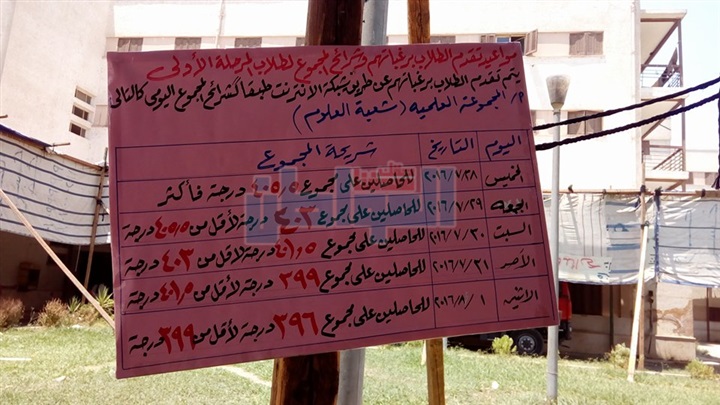 مواعيد تقدم الطلاب برغباتهم وشرائح المجموع لطلاب المرحلة الأولى
يتم تقدم الطلاب برغباتهم عن طريق شبكة الانترنت طبقا لشرائح المجموع اليومى كالتالى
المجموعة العلميه (شعبة العلوم)
اليوم التاريخ شريحة المجموع
الخميس ٢٠١٦/٧/٢٨ للحاصلين على مجموع ٤٠٥,٥ درجة فأكثر
الجمعه ٢٠١٦/٧/٢٩ للحاصلين على مجموع ٤٠٣ درجة لأقل من ٤٠٥,٥ درجة
السبت ٢٠١٦/٧/٣٠ للحاصلين على مجموع ٤٠١,٥ درجة لأقل من ٤٠٣ درجة
الأحد ٢٠١٦/٧/٣١ للحاصلين على مجموع ٣٩٩ درجة لأقل من ٤٠١,٥ درجة
الاثنين ٢٠١٦/٨/١ للحاصلين على مجموع ٣٩٦ درجة لأقل من ٣٩٩ درجة